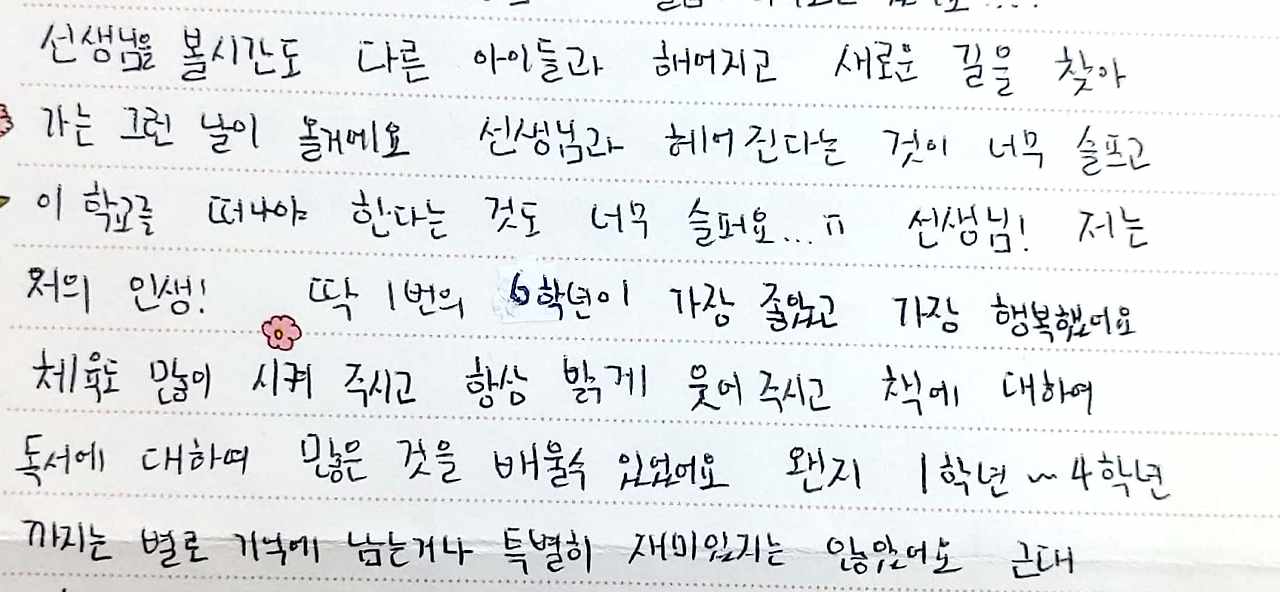 선생님을 볼시간도 다른 아이들과 해어지고 새로운 길을 찾아
가는 그런 날이 올거에요 선생님과 헤어진다는 것이 너무 슬프고
이 학교를 떠나야 한다는 것도 너무 슬퍼요...ㅠ 선생님! 저는
저의 인생! 딱 1번의 6학년이 가장 좋았고 가장 행복했어요
체육도 많이 시켜 주시고 항상 밝게 웃어 주시고 책에 대하여
독서에 대하여 많은 것을 배울수 있었어요 왠지 1학년~4학년
까지는 별로 기억에 남는거나 특별히 재미있지는 않았어요 근대